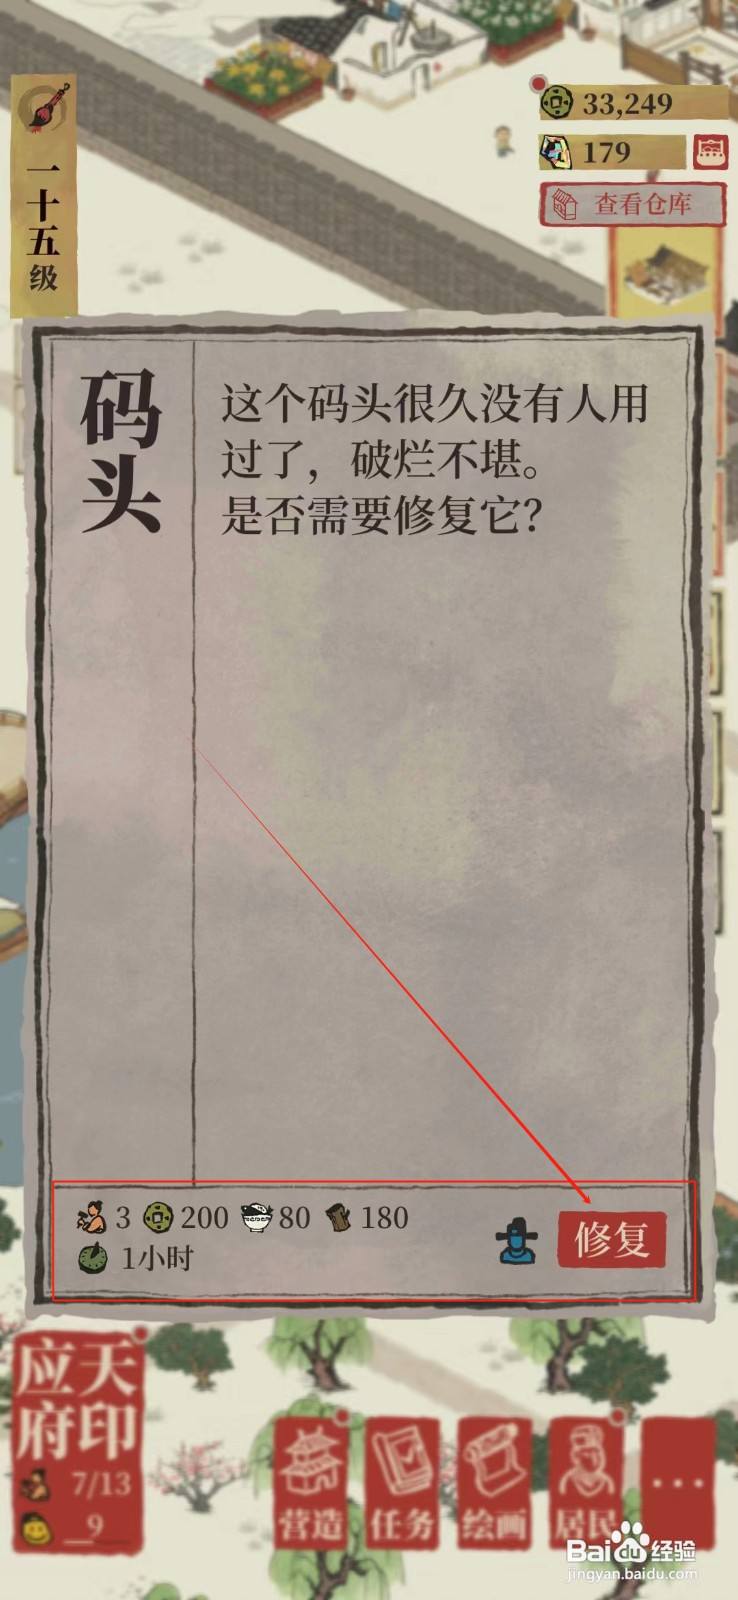 一十五级
33,249
179
查看仓库
码头
这个码头很久没有人用
过了，破烂不堪。
是否需要修复它？
3 200 80 180
1小时
修复
应天
府印
7/13
9
营造
任务
绘画
居民
...
Baidu经验
jingyan.baidu.com